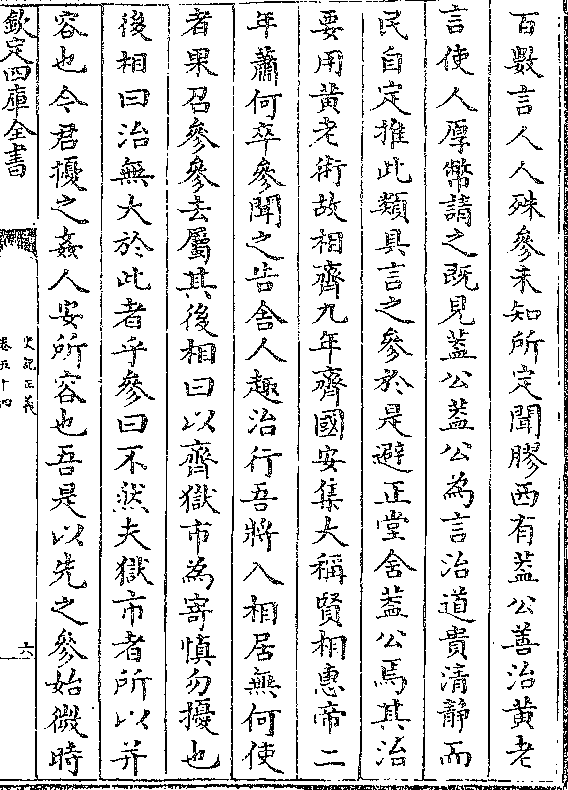 百數言人人殊參未知所定聞膠西有蓋公善治黄老
言使人厚幣請之既見蓋公蓋公為言治道貴清靜而
民自定推此類具言之參於是避正堂舍蓋公焉其治
要用黄老術故相齊九年齊國安集大稱賢相惠帝二
年蕭何卒參聞之告舍人趣治行吾將入相居無何使
者果召參參去屬其後相曰以齊獄市為寄慎勿擾也
後相曰治無大於此者乎參曰不然夫獄市者所以并
容也今君擾之姦人安所容也吾是以先之參始微時
欽定四庫全書
史記正義
卷五十四
六